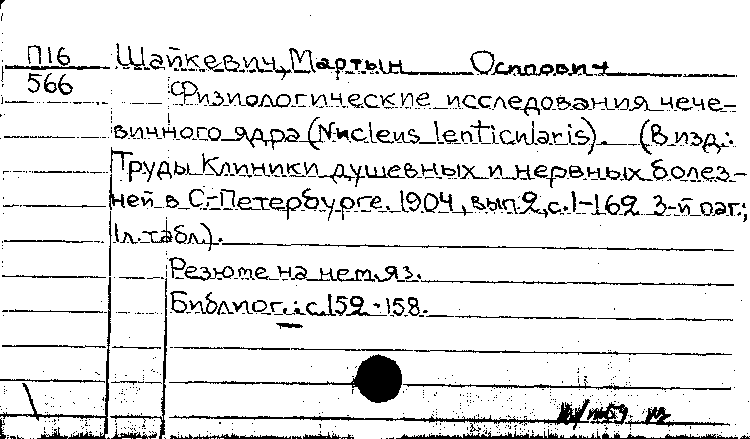 П16 Шайкевич, Мартын Осипович
566 Физиологические исследования чече-
вичного ядра (Nucleus lenticularis). (В изд.:
Труды Клиники душевных и нервных болез-
ней в С.-Петербурге. 1904, вып.2, с.1-162 3-й паг.;
1л. табл.).
Резюме на нем. яз.
Библиог.: с.152-158.